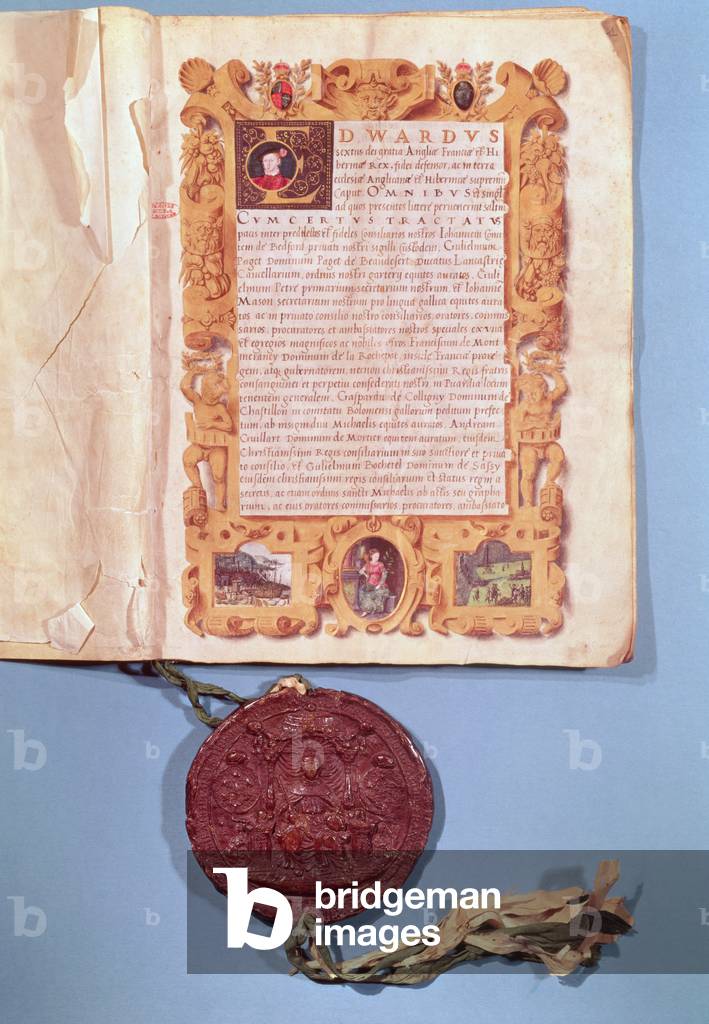 EDWARDVS
sextus dei gratia Angliæ Franciæ et Hi
berniæ Rex, fidei defensor, ac in terra
ecclesiæ Anglicanæ et Hibernicæ supremū
Caput OMNIBVS
ad quos presentes litteræ pervenerint salūtē
CVM CERTVS TRACTATVS
pacis inter predilectos et fideles consiliarios nostros Iohannem Comi
tem de Bedford privati nostri sigilli custodem, Gulielmum
Paget Dominum Paget de Beaudesert Ducatus Lancastriæ
Cancellarium, ordinis nostri garterij equites auratos, Guli
elmum Petre primarium secretarium nostrum, et Iohannē
Mason secretarium nostrum pro lingua gallica equites aura
tos ac in privato consilio nostro consiliarios, oratores, commis
sarios, procuratores et ambassiatores nostros speciales ex una
et egregios magnificos ac nobiles viros Franciscum de Mont
merancy Dominum de la Rochepot, insulæ Franciæ prore
gem, atq, gubernatorem, necnon christianissimi Regis fratris
consanguinei et perpetui confederati nostri in Picardia locum
tenentem generalem, Gaspardū de Colligny Dominum de
Chastillon in comitatu Bolonensi gallorum peditum prefec
tum, ab insigni divi Michaelis equites auratos, Andream
Guillart Dominum de Mortier equitem auratum, eiusdem
Christianissimi Regis consiliarium in suo sanctiore et priva
to consilio, et Gulielmum Bochetel Dominum de Sassy
eiusdem christianissimi regis consiliarium et status regni a
secretis, ac etiam ordinis sancti Michaelis ab actis seu grapha
rium, ac eius oratores commissarios, procuratores, ambassiato
bridgeman
images